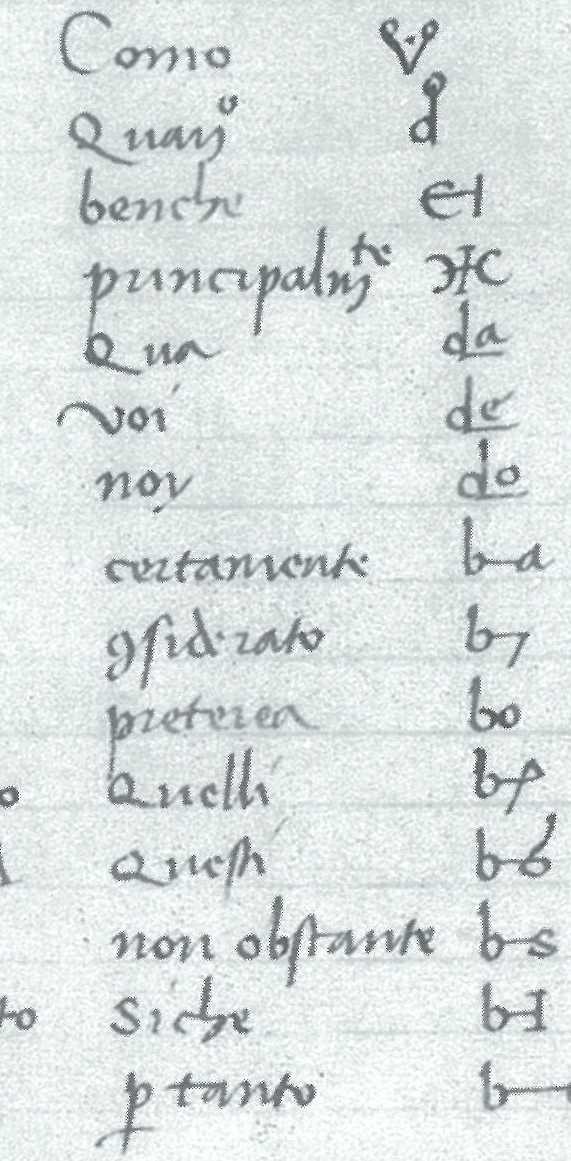 Como
Quanº
benche
principalmte
Qua da
voi de
noy do
certamente b-a
ꝯsiderato b7
preterea bo
Quelli
Questi
non obstante b-s
Siche
ꝑ tanto